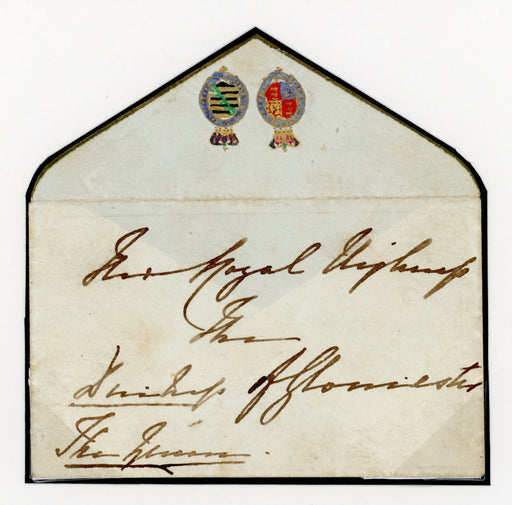 Her Royal Highness
The
Duchess of Gloucester
The Queen.